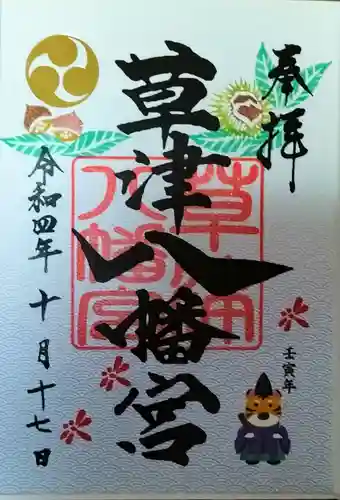 奉拝
草津八幡宮
草津
八幡宮
令和四年十月十七日
壬寅年